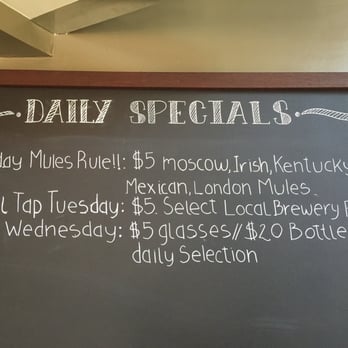 DAILY SPECIALS
day Mules Rule!!: $5 moscow, Irish, Kentucky
Mexican, London Mules
l Tap Tuesday: $5. Select Local Brewery
Wednesday: $5 glasses// $20 Bottle
daily Selection